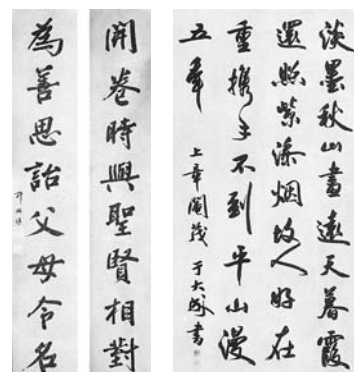 淡墨秋山畫遠天暮霞
還照紫添烟故人好在
重攜手不到平山漫
五年
上章閹茂 于大成書
開卷時與聖賢相對
為善思詒父母令名